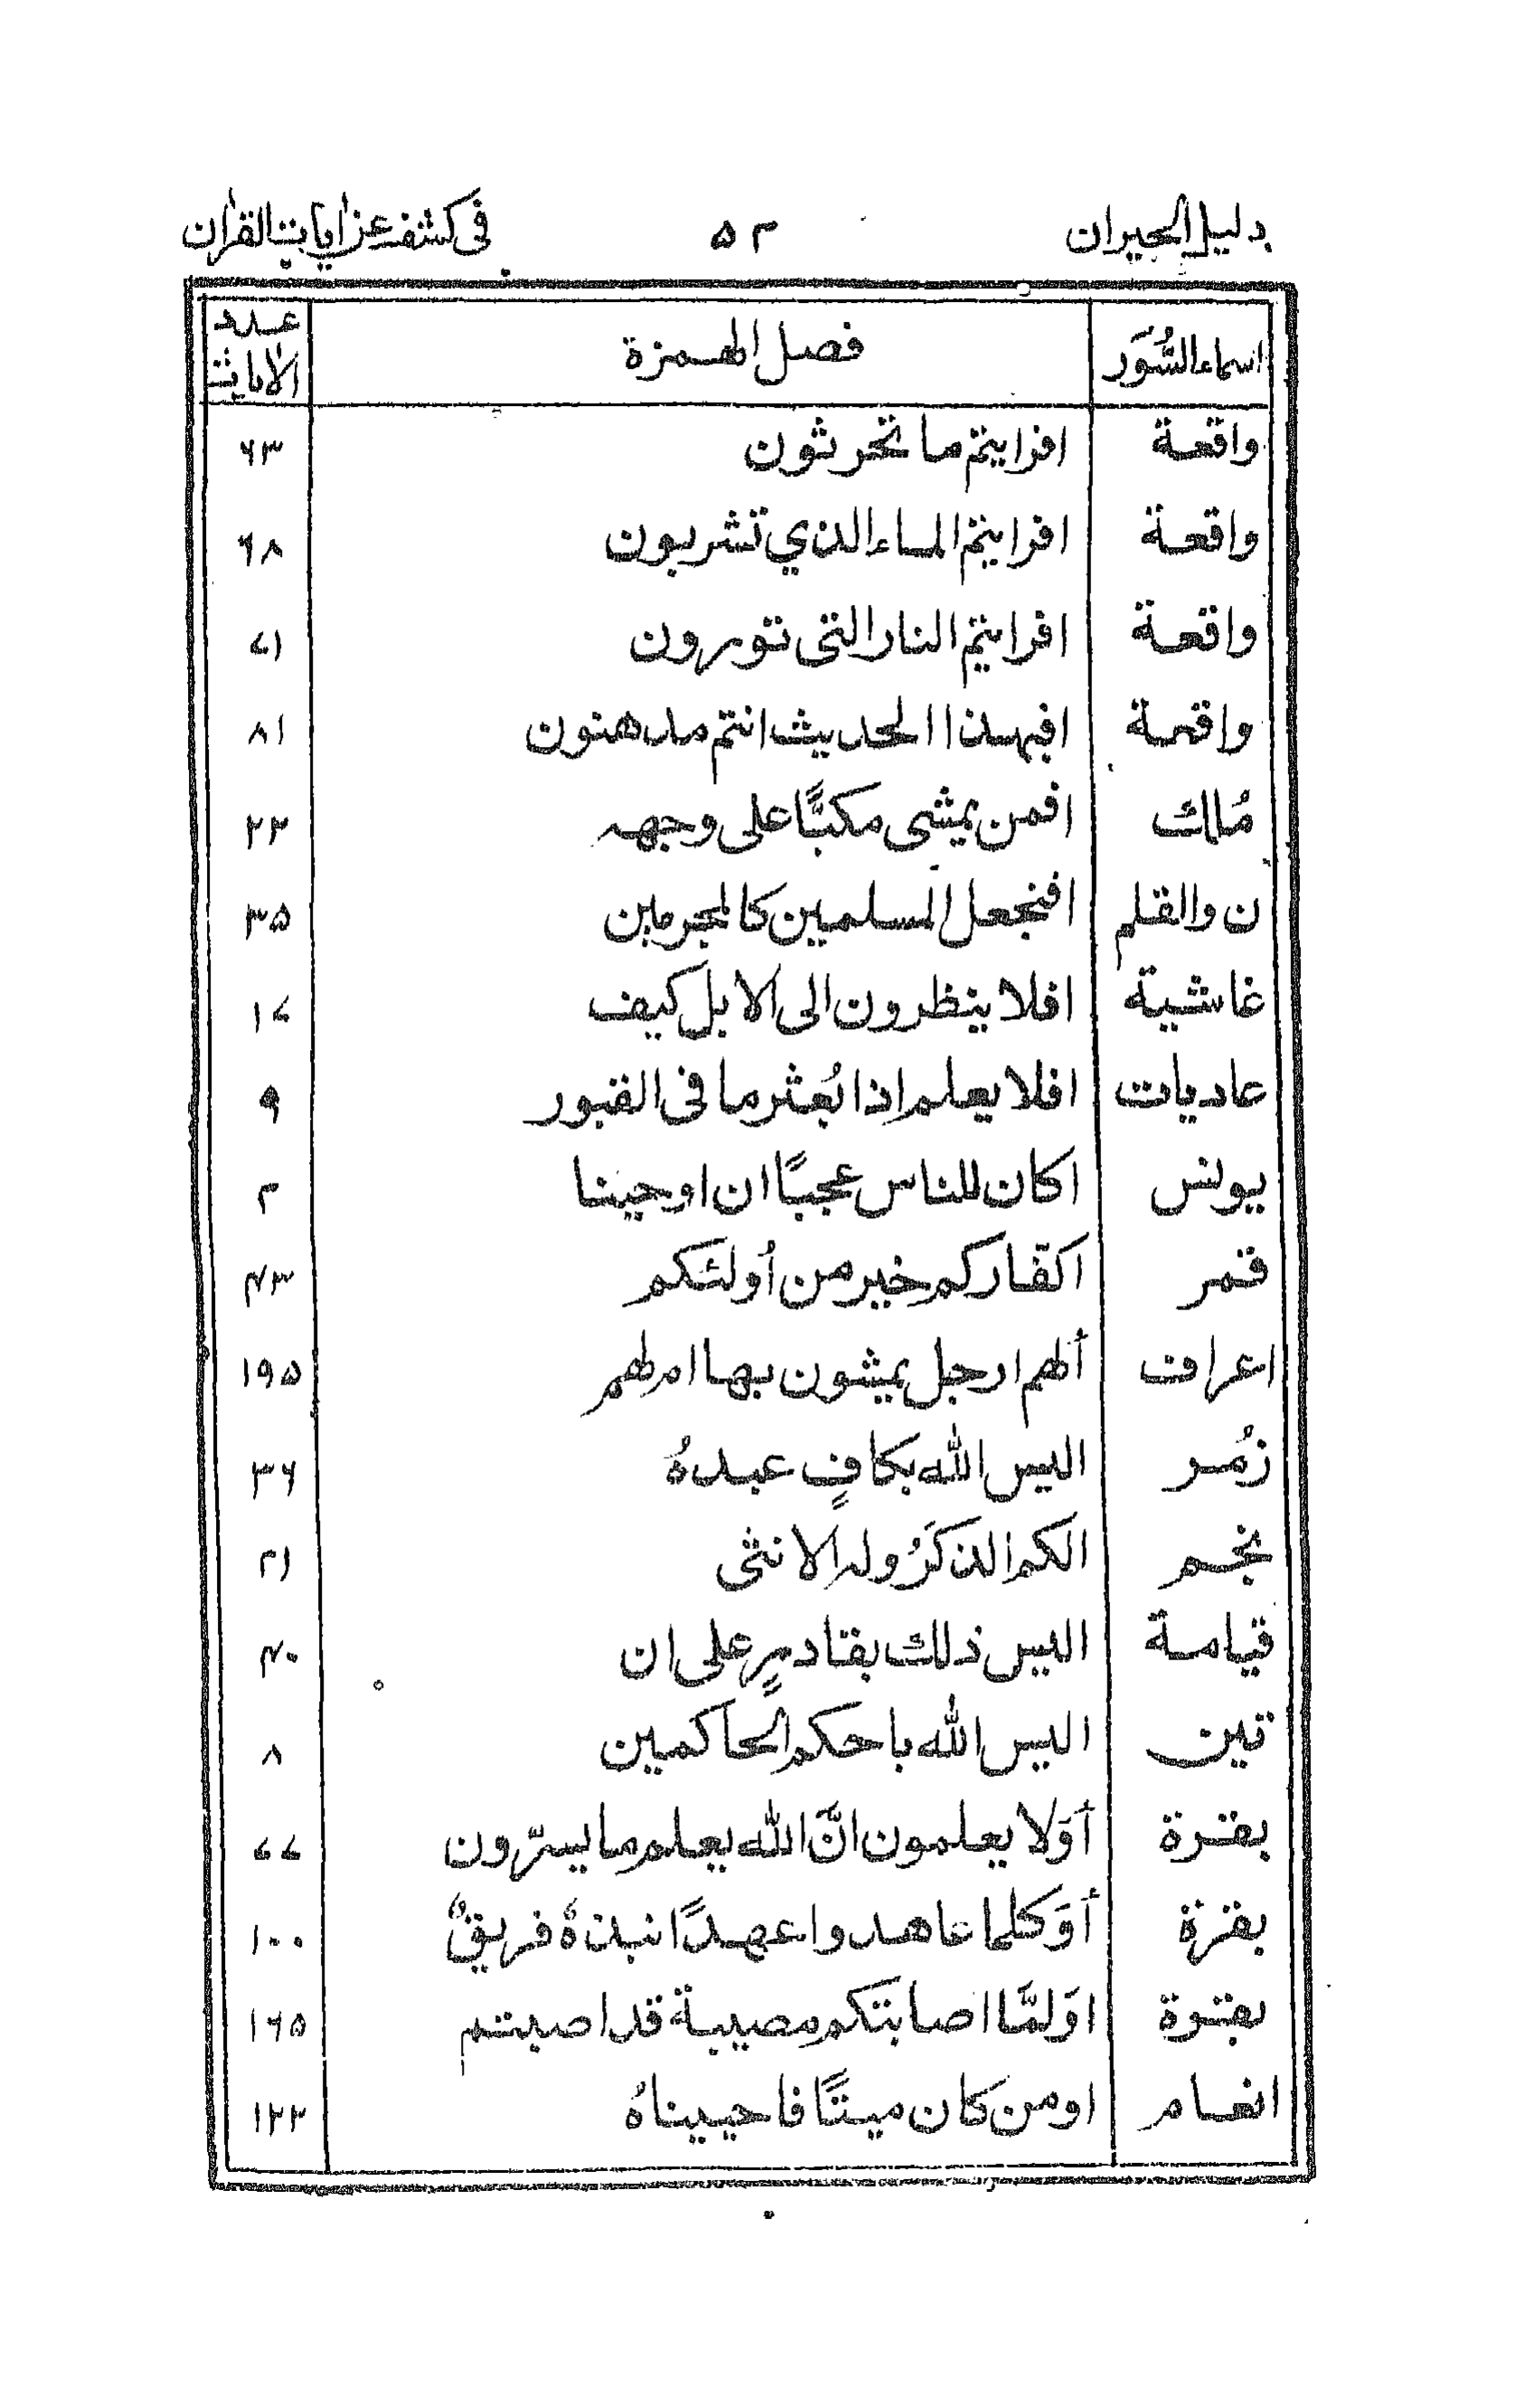 دليل الحيران ٥٢ فى كشف عن اٰيات القراٰن
اسماء السُّوَر فصل الهمزة عدد الاٰيات
واقعة افرايتم ما تحرثون ٦٣
واقعة افرايتم الماء الذي تشربون ٦٨
واقعة افرايتم النار التى تورون ٧١
واقعة افبهذا الحديث انتم مدهنون ٨١
مُلك افمن يمشى مكبًّا على وجهه ٢٢
ن والقلم افنجعل المسلمين كالمجرمين ٣٥
غاشية افلا ينظرون الى الابل كيف ١٧
عاديات افلا يعلم اذا بُعثر ما فى القبور ٩
يونس اكان للناس عجبًا ان اوحينا ٢
قمر اكفاركم خير من أولئكم ٤٣
اعراف ألهم ارجل يمشون بها ام لهم ١٩٥
زُمر اليس الله بكافٍ عبدهُ ٣٦
نجم الكم الذكَرُ وله الانثى ٢١
قيامة اليس ذلك بقادرٍ على ان ٤٠
تين اليس الله باحكم الحاكمين ٨
بقرة أوَلا يعلمون انَّ الله يعلم ما يسرّون ٧٧
بقرة أوَكلما عاهدوا عهدًا نبذهُ فريقٌ ١٠٠
بقرة اوَلمَّا اصابتكم مصيبة قد اصبتم ١٦٥
انعام اومن كان ميتًا فاحييناهُ ١٢٢